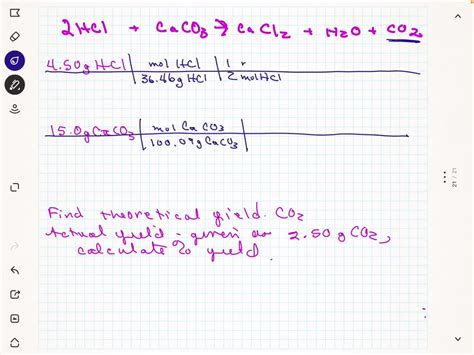 2HCl + CaCO3 → CaCl2 + H2O + CO2
4.50g HCl | mol HCl | 1
36.46g HCl | 2 mol HCl
15.0g CaCO3 | mol CaCO3
100.09g CaCO3
Find theoretical yield CO2
Actual yield - given as 2.50 g CO2,
calculate % yield.
21 / 21